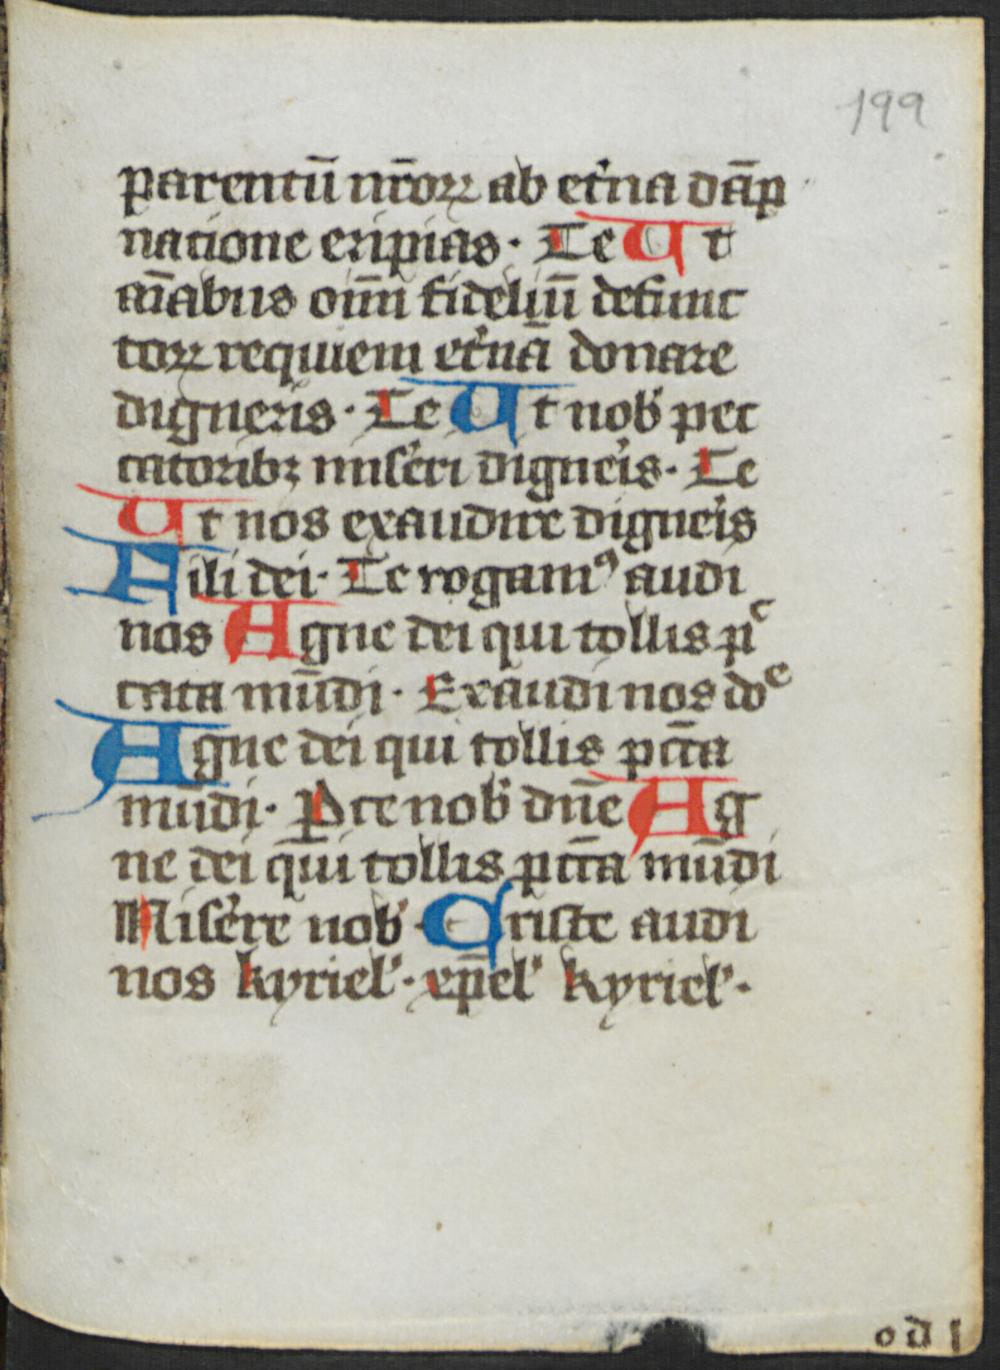 199
parentū nr̄oꝝ ab et͛na dāp
natione eripias · Te Ut
aīabus oīm fideliū defunc
toꝝ requiem et͛nā donare
digneris · Te Ut nob̾ pec
catoribꝫ miser̾i digne͛is · Te
Ut nos exaudire digne͛is
Fili dei · Te rogamꝰ audi
nos Agne dei qui tollis pᶜ
cata mūdi · Exaudi nos doᵉ
Agne dei qui tollis pcc̄a
mūdi · Ꝑce nob̾ dn̄e Ag
ne dei qui tollis pcc̄a mūdi
Mise͛re nob̾ · Criste audi
nos kyriel̾ · xp̄el̾ kyriel̾ ·